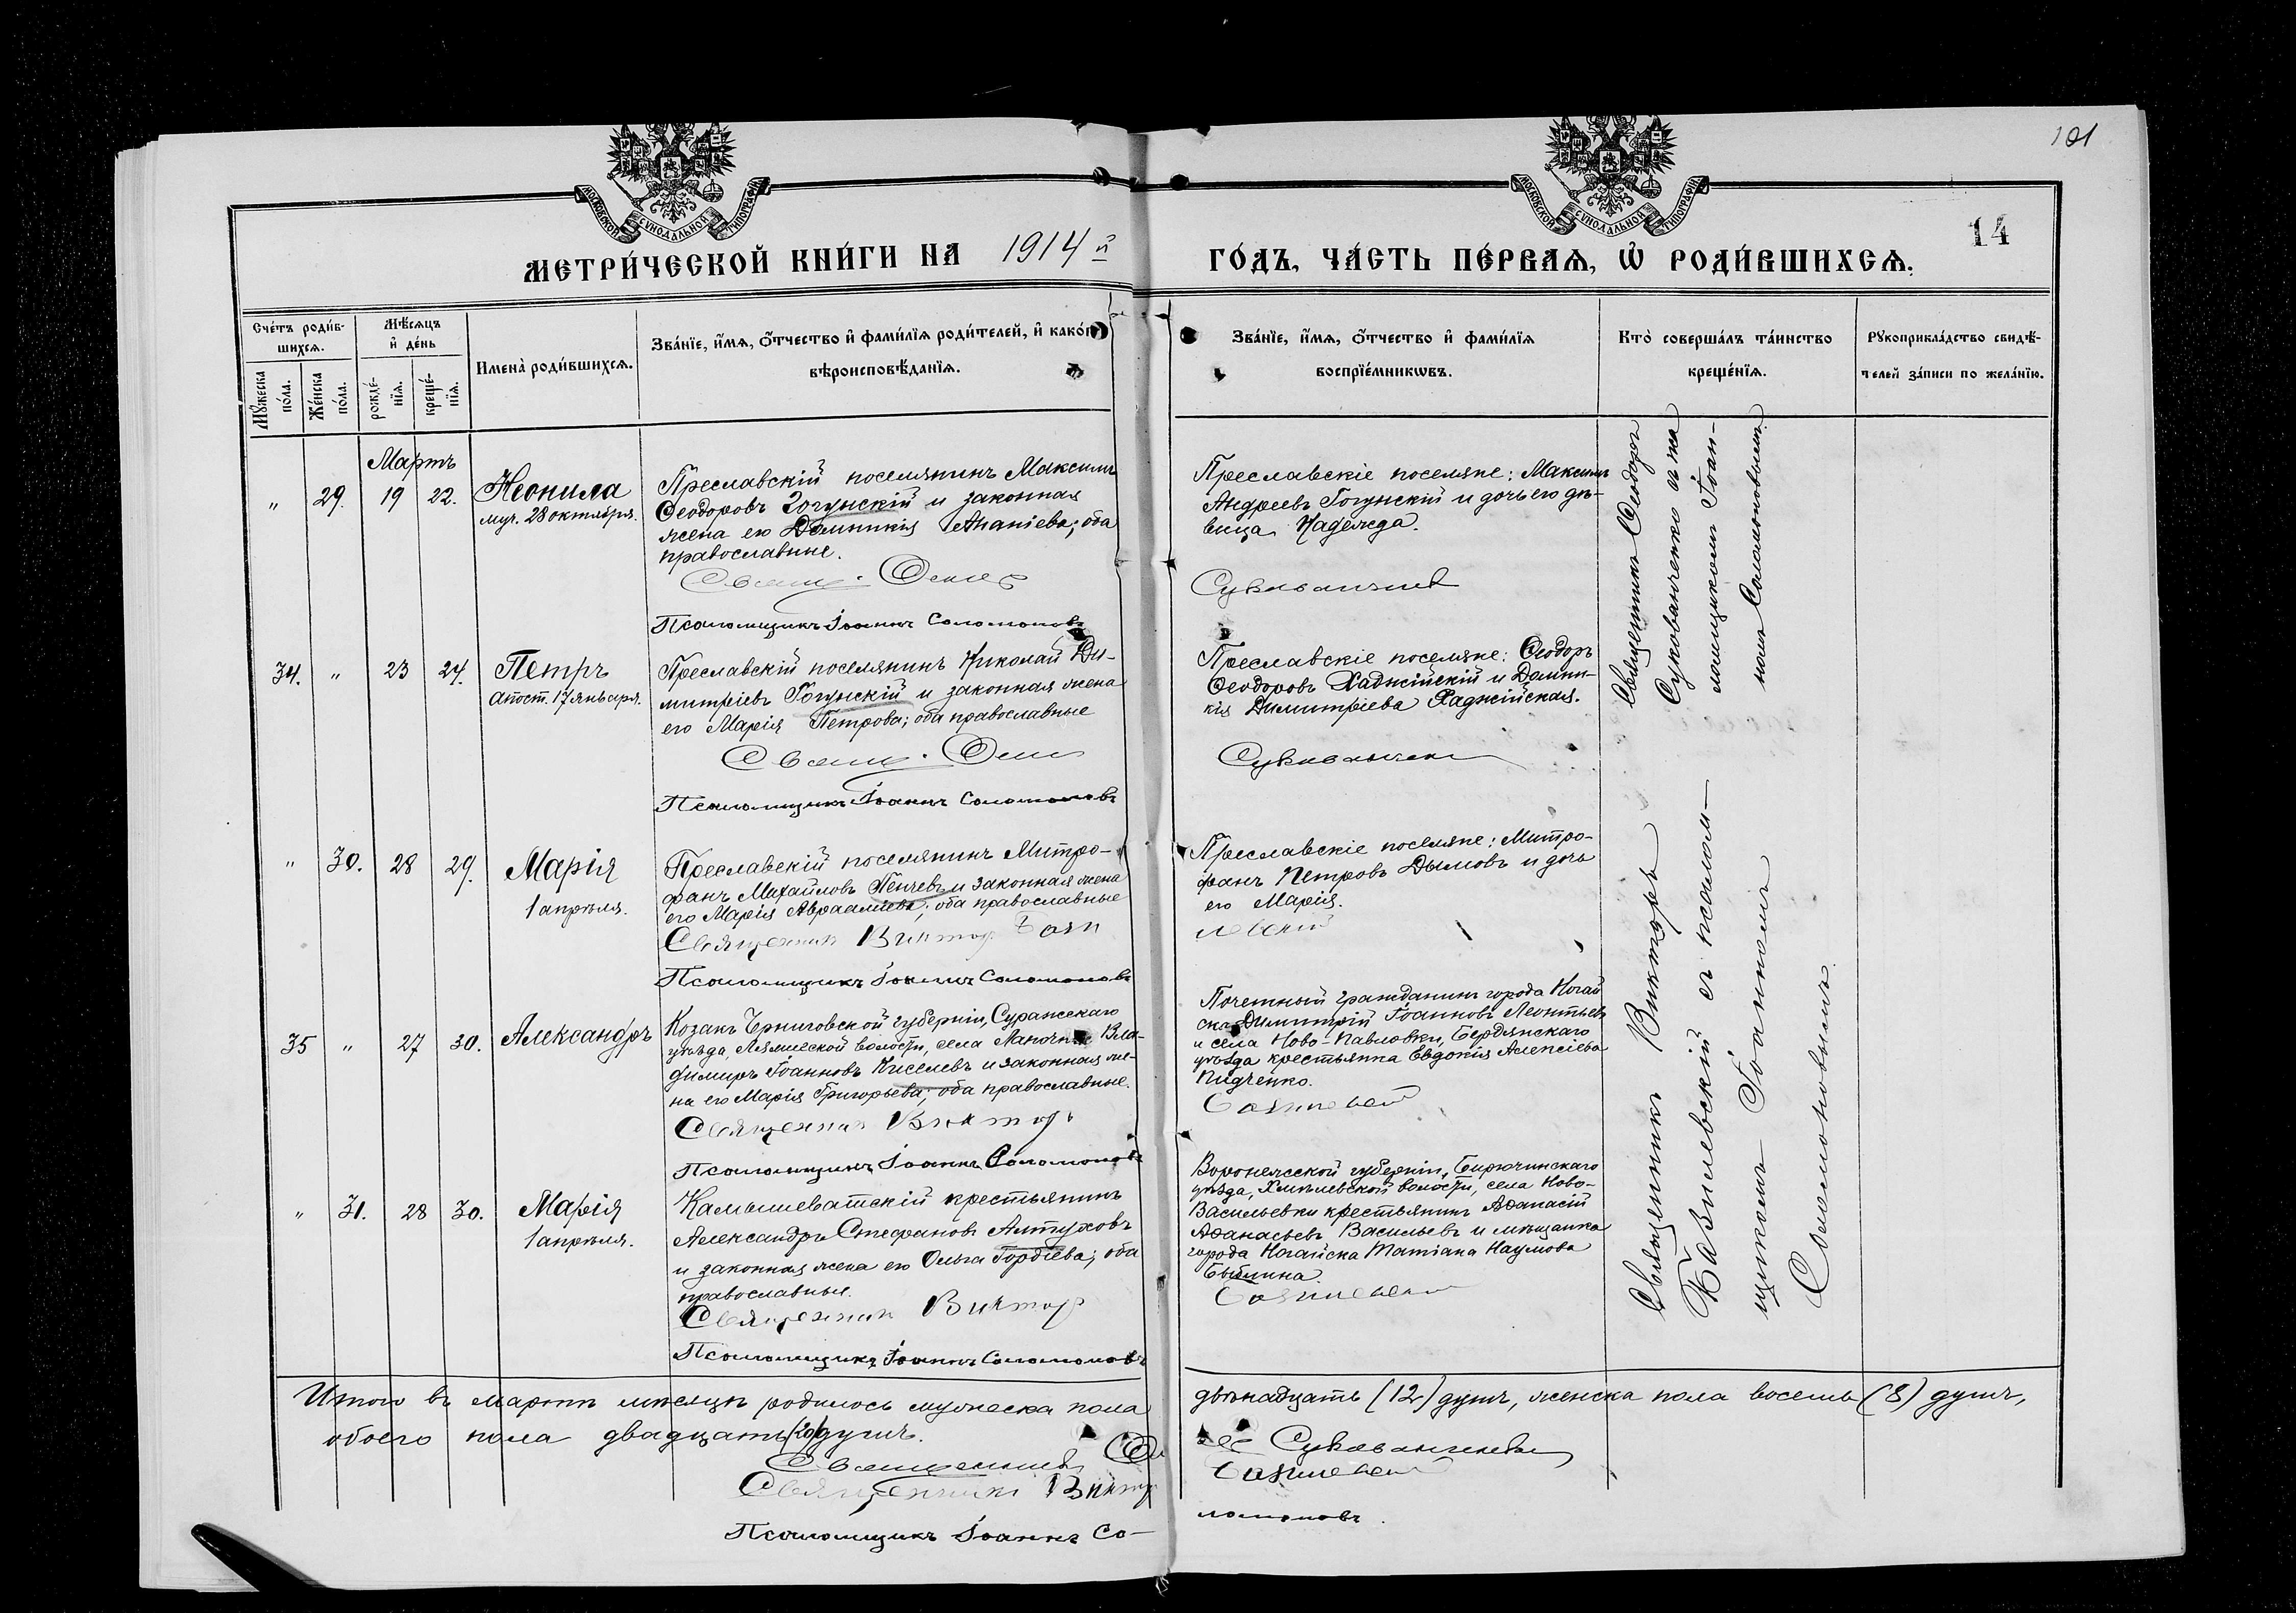 101
14
МОСКОВСКОЙ СѴНОДАЛЬНОЙ ТИПОГРАФІИ
МОСКОВСКОЙ СѴНОДАЛЬНОЙ ТИПОГРАФІИ
МЕТРИ́ЧЕСКОЙ КНИ́ГИ НА 1914 й
ГО́ДЪ, ЧА́СТЬ ПЕ́РВАѦ, Ѡ҆ РОДИ́ВШИХСѦ.
Сче́тъ роди́в-
шихсѧ.
Мꙋ́жеска по́ла.
Же́нска по́ла.
Мѣ́сѧцъ
и҆ де́нь
рожде́-нїѧ.
креще́-нїѧ.
И҆мена̀ роди́вшихсѧ.
Зва́нїе, и҆́мѧ, ѻ҆́тчество и҆ фами́лїѧ роди́телей, и҆ како́гѡ
вѣроисповѣ́данїѧ.
Зва́нїе, и҆́мѧ, ѻ҆́тчество и҆ фами́лїѧ
воспрїе́мникѡвъ.
Кто̀ соверша́лъ та́инство
креще́нїѧ.
Рꙋкоприкла́дство свидѣ́-
телей за́писи по жела́нїю.
Мартъ
" 29. 19 22. Неонила
муч. 28 октября.
Преславскій поселянинъ Максимъ
Ѳеодоровъ Гогунскій и законная
жена его Домникія Ананіева; оба
православные.
Свящ.
Псаломщикъ Іоаннъ Соломоновъ
Преславскіе поселяне: Максимъ
Андреевъ Гогунскій и дочь его дѣ-
вица Надежда.
Священникъ Ѳеодоръ
Сукованченко съ пса
ломщикомъ Іоан-
номъ Соломоновымъ
34. " 23 24. Петръ
Апост. 17 января.
Преславскій поселянинъ Николай Ди-
митріевъ Гогунскій и законная жена
его Марія Петрова; оба православные
Свящ.
Псаломщикъ Іоаннъ Соломоновъ
Преславскіе поселяне: Ѳеодоръ
Ѳеодоровъ Хаджійскій и Домни-
кія Димитріева Хаджійская.
" 30. 28 29. Марія
1 апрѣля.
Преславскій поселянинъ Митро-
фанъ Михайловъ Пенчевъ и законная жена
его Марія Авраамiева; оба православные
Священникъ Виктор Бази
Псаломщикъ Іоаннъ Соломоновъ
Преславскіе поселяне: Митро-
фанъ Петровъ Дымовъ и дочь
его Марія.
левскій
35 " 27 30. Александръ
Козакъ Черниговской губерніи, Суражскаго
уѣзда, Лялической волости, села Вла-
димиръ Іоанновъ Киселевъ и законная же-
на его Марія Григорьева; оба православные.
Священник Виктор
Псаломщикъ Іоаннъ Соломоновъ
Почетный гражданинъ города Ногай
ска Димитрій Іоанновъ Леонтьевъ
и села Ново-Павловки, Бердянскаго
уѣзда крестьянка Евдокія Алексіева
Кидченко.
Базилевскій
Священникъ Викторъ
Базилевскій съ псалом-
щикомъ Іоанномъ
Соломоновымъ.
" 31. 28 30. Марія
1 апрѣля.
Камышеватскій крестьянинъ
Александръ Стефановъ Алтуховъ
и законная жена его Ольга Гордіева; оба
православные.
Священник Виктор
Псаломщикъ Іоаннъ Соломоновъ
Воронежской губерніи, Бирючинскаго
уѣзда, Хмѣлевской волости, села Ново-
Васильевки крестьянинъ Аѳанасій
Аѳанасьевъ Васильевъ и мѣщанка
города Ногайска Татіана Наумова
Былина.
Базилевскій
Итого въ мартѣ мѣсяцѣ родилось мужеска пола двѣнадцать (12) душъ, женска пола восемь (8) душъ,
обоего пола двадцать (20) душъ.
Священникъ Сукованченко
Священникъ Виктор Базилевскій
Псаломщикъ Іоаннъ Со-
ломоновъ.